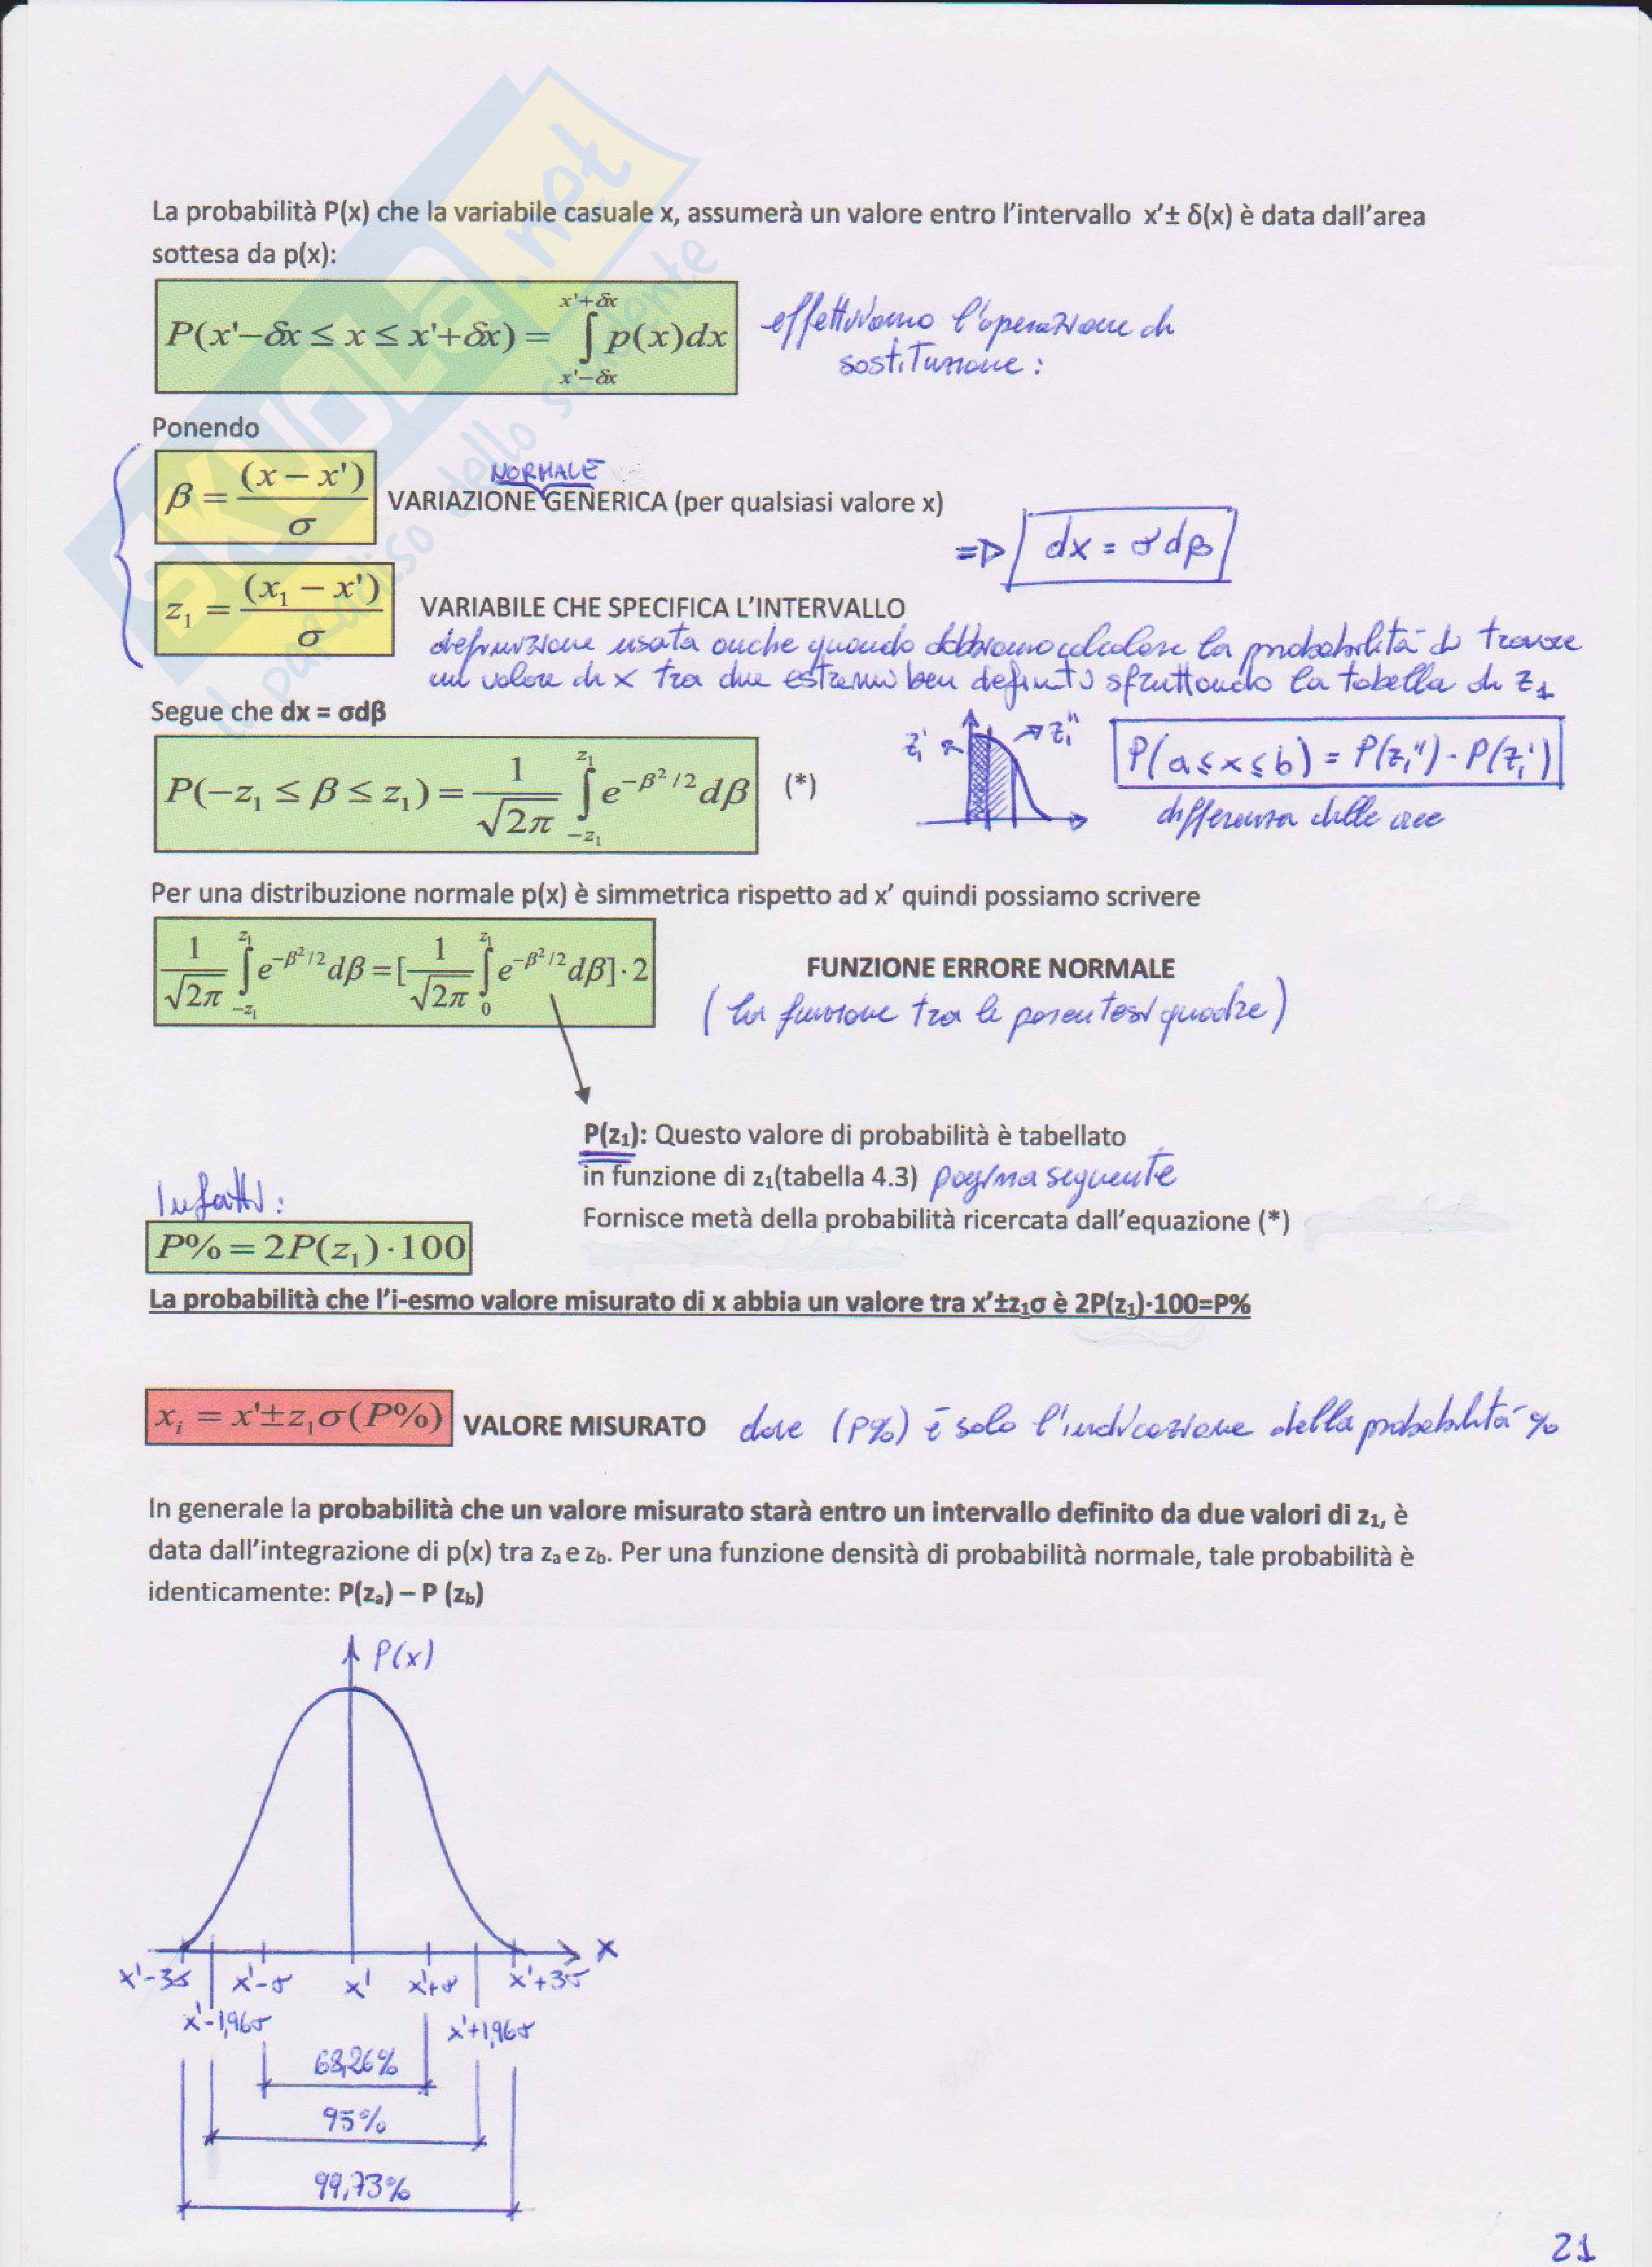 SKUOLA.net
il paradiso dello studente
La probabilità P(x) che la variabile casuale x, assumerà un valore entro l'intervallo x'± δ(x) è data dall'area
sottesa da p(x):
P(x'−δx ≤ x ≤ x'+δx) = ∫_{x'−δx}^{x'+δx} p(x)dx
effettuiamo l'operazione di
sostituzione:
Ponendo
β = (x − x') / σ
NORMALE
VARIAZIONE GENERICA (per qualsiasi valore x)
=> dx = σdβ
z₁ = (x₁ − x') / σ
VARIABILE CHE SPECIFICA L'INTERVALLO
definizione usata anche quando dobbiamo calcolare la probabilità di trovare
un valore di x tra due estremi ben definiti sfruttando la tabella di z₁
Segue che dx = σdβ
P(−z₁ ≤ β ≤ z₁) = 1/√2π ∫_{−z₁}^{z₁} e^{−β²/2} dβ (*)
z₁' z₁''
P(a≤x≤b) = P(z₁'') - P(z₁')
differenza delle aree
Per una distribuzione normale p(x) è simmetrica rispetto ad x' quindi possiamo scrivere
1/√2π ∫_{−z₁}^{z₁} e^{−β²/2} dβ = [1/√2π ∫_{0}^{z₁} e^{−β²/2} dβ]·2
FUNZIONE ERRORE NORMALE
(la funzione tra le parentesi quadre)
P(z₁): Questo valore di probabilità è tabellato
in funzione di z₁(tabella 4.3) pagina seguente
Fornisce metà della probabilità ricercata dall'equazione (*)
Infatti:
P% = 2P(z₁)·100
La probabilità che l'i-esmo valore misurato di x abbia un valore tra x'±z₁σ è 2P(z₁)·100=P%
xᵢ = x'±z₁σ(P%) VALORE MISURATO dove (P%) è solo l'indicazione della probabilità %
In generale la probabilità che un valore misurato starà entro un intervallo definito da due valori di z₁, è
data dall'integrazione di p(x) tra zₐ e z_b. Per una funzione densità di probabilità normale, tale probabilità è
identicamente: P(zₐ) – P (z_b)
P(x)
x
x'-3σ x'-σ x' x'+σ x'+3σ
x'-1,96σ x'+1,96σ
68,26%
95%
99,73%
21